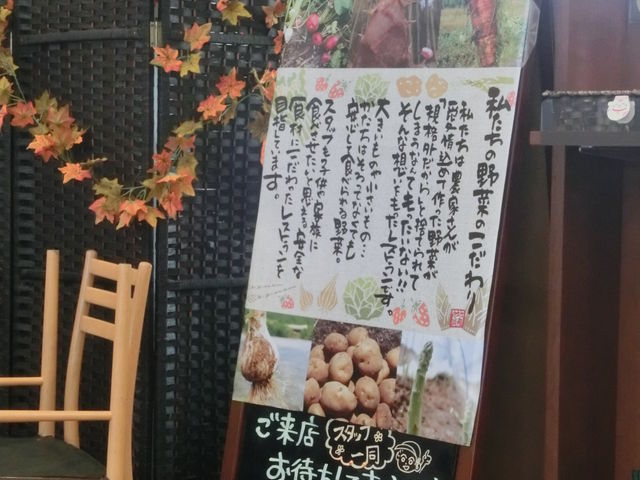 私たちの野菜のこだわり
私たちは農家さんが
愛情込めて作った野菜が
「規格外だから」と捨てられて
しまうなんてもったいない!!
そんな想いをもったレストランです。
大きいものや小さいもの…
かたちはそろってなくても
安心して食べられる野菜…
スタッフも子供や家族に
食べさせたいと思える。安全な
食材にこだわったレストランを
目指しています。
ご来店
スタッフ
一同
お待ちして